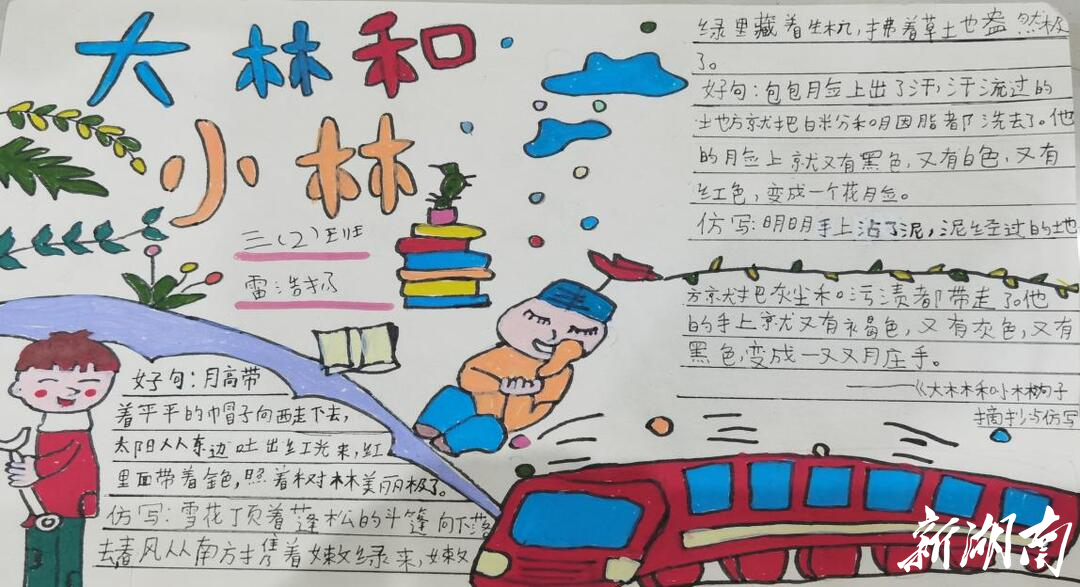 大林和
小林
三(2)班
雷浩
好句：月高带
着平平的帽子向西走下去，
太阳从东边吐出红光来，红
里面带着金色，照着树林美丽极了。
仿写：雪花顶着蓬松的斗篷向下落
去春风从南方携着嫩绿来，嫩
绿里藏着生机，拂着草土也盎然极
了。
好句：包包脸上出了汗，汗流过的
地方就把白粉和胭脂都洗去了。他
的脸上就又有黑色，又有白色，又有
红色，变成一个花脸。
仿写：明明手上沾了泥，泥经过的地
方就把灰尘和污渍都带走了。他
的手上就又有褐色，又有灰色，又有
黑色，变成一双脏手。
——《大林和小林》句子
摘抄与仿写
新湖南